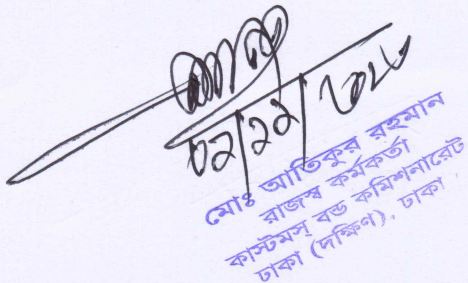 মোঃ আতিকুর রহমান
রাজস্ব কর্মকর্তা
কাস্টমস্ বন্ড কমিশনারেট
ঢাকা (দক্ষিণ), ঢাকা।